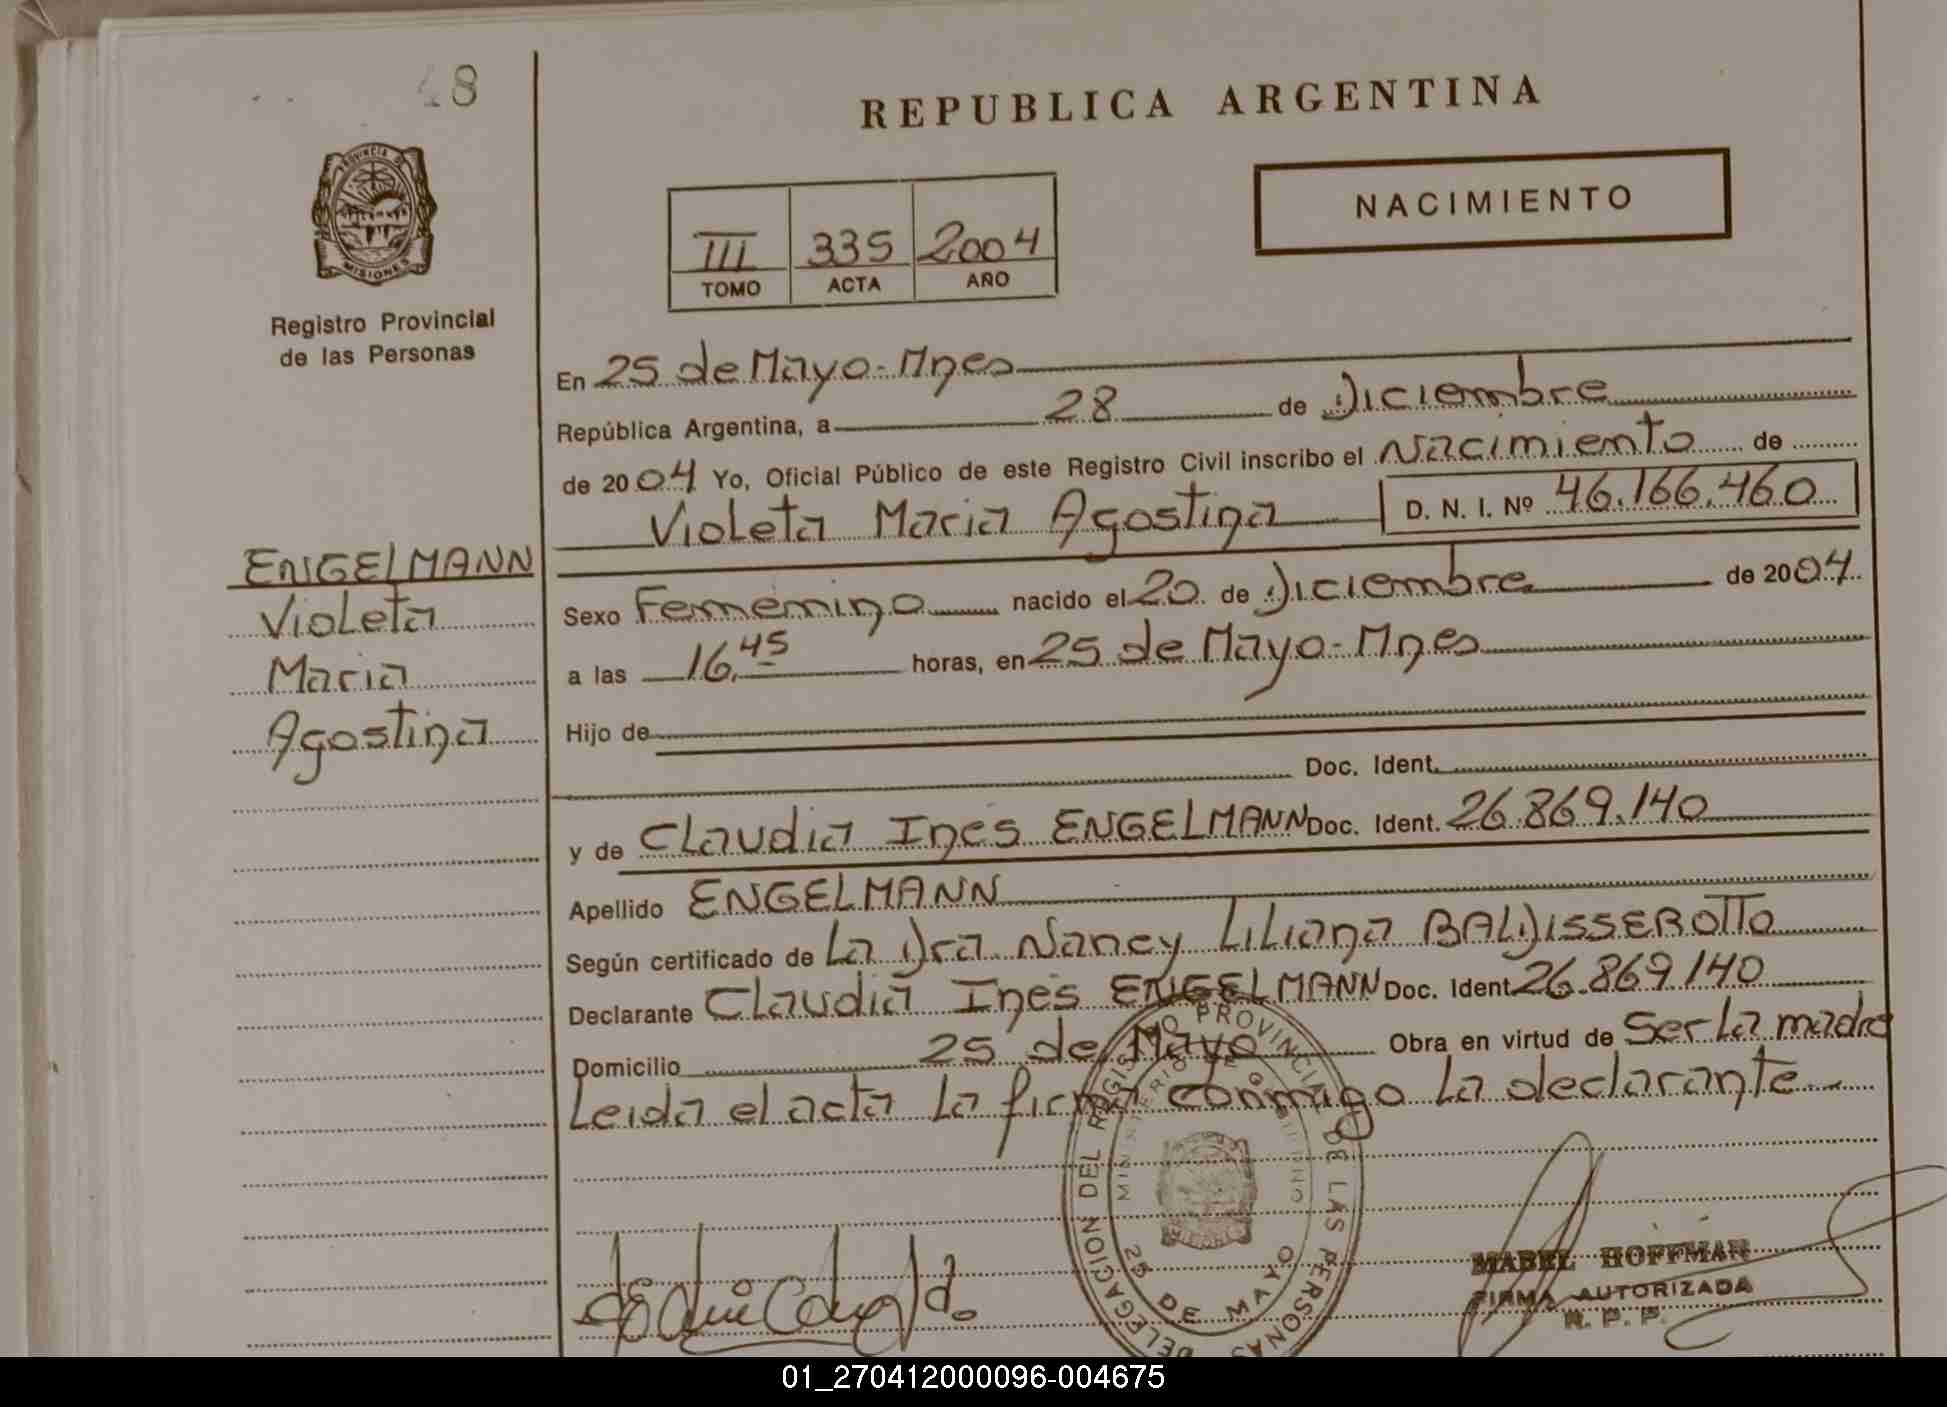 48
REPUBLICA ARGENTINA
NACIMIENTO
PROVINCIA DE
MISIONES
Registro Provincial
de las Personas
III 335 2004
TOMO ACTA AÑO
En 25 de Mayo-Mnes
República Argentina, a 28 de Diciembre
de 2004 Yo, Oficial Público de este Registro Civil inscribo el Nacimiento de
Violeta Maria Agostina D. N. I. Nº 46.166.460
ENGELMANN
Violeta
Maria
Agostina
Sexo Femenino nacido el 20 de Diciembre de 2004
a las 16,45 horas, en 25 de Mayo-Mnes
Hijo de
Doc. Ident.
y de Claudia Ines ENGELMANN Doc. Ident. 26.869.140
Apellido ENGELMANN
Según certificado de La Dra. Nancy Liliana BALDISSEROTTO
Declarante Claudia Ines ENGELMANN Doc. Ident 26.869.140
Domicilio 25 de Mayo Obra en virtud de Ser La madre
Leida el acta La firma conmigo La declarante
DELEGACION DEL REGISTRO PROVINCIAL DE LAS PERSONAS
MINISTERIO DE GOBIERNO
MISIONES
25 DE MAYO
MABEL HOFFMAN
FIRMA AUTORIZADA
R. P. P.
01_270412000096-004675